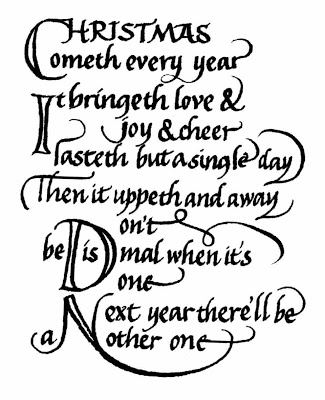 CHRISTMAS
Cometh every year
It bringeth love &
joy & cheer
lasteth but a single day
Then it uppeth and away
Don't
be Dismal when it's
Done
Next year there'll be
aNother one